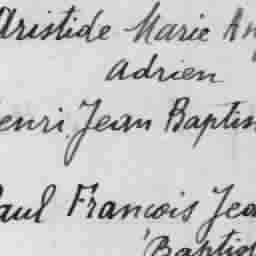 Aristide Marie An
Adrien
enri Jean Baptis
Paul François Jea
Baptis